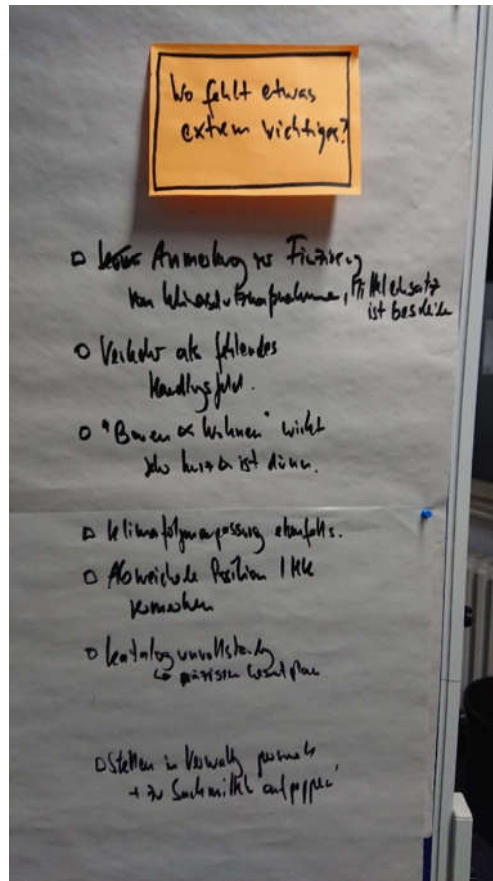 Wo fehlt etwas
extrem wichtiges?
Anmerkung zur Finzierung
von Klimaschutzmaßnahmen, Mittelersatz
ist
Verkehr als fehlendes
Handlungsfeld.
"Bauen & Wohnen" wirkt
sehr kurz & ist dünn.
Klimafolgenanpassung ebenfalls.
Abweichende Position IHK
vermerken
Katalog unvollständig
Stellen in Verwaltung
+ zu Sachmittel